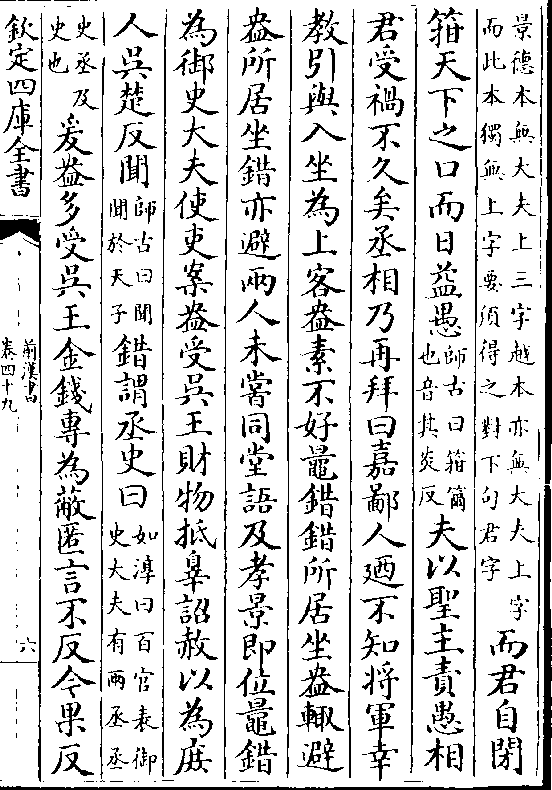 景德本無大夫上三字越本亦無大夫上字
而此本獨無上字要須得之對下句君字
而君自閉
箝天下之口而日益愚
師古曰箝籋
也音其炎反
夫以聖主責愚相
君受禍不久矣丞相乃再拜曰嘉鄙人廼不知將軍幸
教引與入坐為上客盎素不好鼂錯錯所居坐盎輒避
盎所居坐錯亦避兩人未嘗同堂語及孝景即位鼂錯
為御史大夫使吏案盎受吳王財物抵辠詔赦以為庶
人吳楚反聞
師古曰聞
聞於天子
錯謂丞史曰
如淳曰百官表御
史大夫有兩丞丞
史丞及
史也
爰盎多受吳王金錢專為蔽匿言不反今果反
欽定四庫全書
前漢書
卷四十九
六